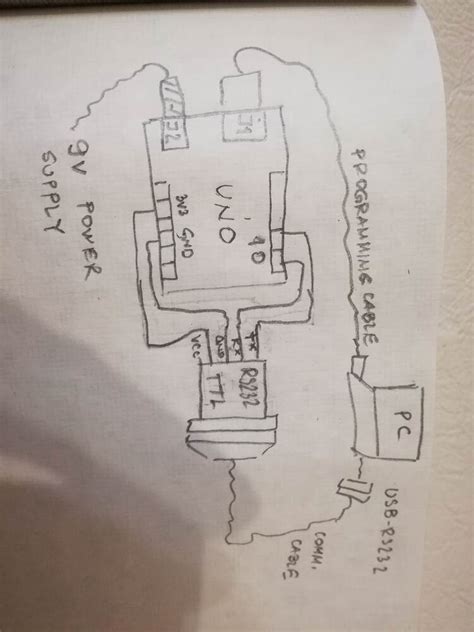 PROGRAMMING CABLE
J1
J2
9V POWER
SUPPLY
UNO
1 0
3V3 GND
TX
RX
GND
VCC
RS232
TTL
PC
USB-RS232
COMM.
CABLE